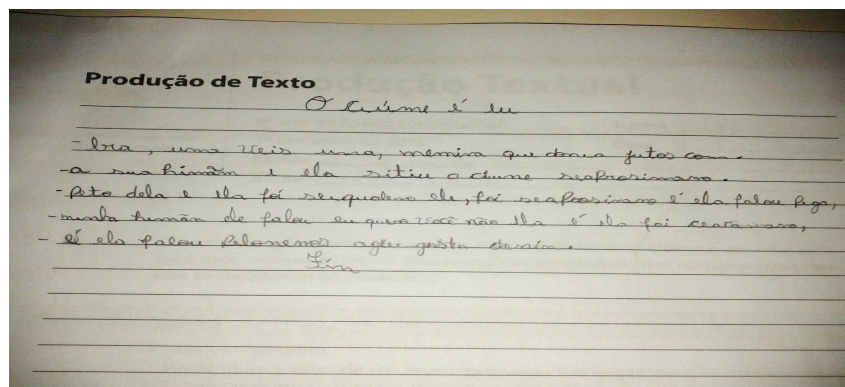 Produção de Texto
O ciúme é eu
- Era, uma veis uma, menina que dorua jutos com.
- a sua himãn e ela sitiu o ciume seaprosimano.
- peto dela e ela foi ele, foi seaprosimano é ela falou pega,
- minha hirmãn ele falou eu quero você não ela é ela foi
- ei ela falou pelonemos ageu gosta demin.
Fin